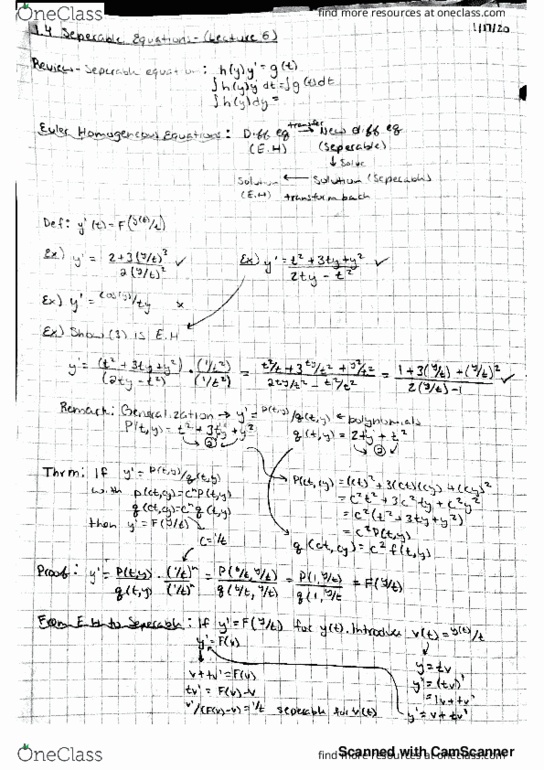 OneClass
find more resources at oneclass.com
1.4 Seperable Equations - (Lecture 6)
1/17/20
Review - Seperable equations: h(y)y' = g(t)
∫h(y)y dt = ∫g(t)dt
∫h(y)dy =
Euler Homogeneous Equations: Diff eq (E.H) transfer → New diff eq (seperable)
↓ Solve
Solution (E.H) ← transform back Solution (Seperable)
Def: y'(t) = F(y(t)/t)
Ex) y' = 2+3(y/t)³ / 2(y/t)² ✓
Ex) y' = t² + 3ty + y² / 2ty - t² ✓
Ex) y' = cos(y)/ty x
Ex) Show (3) is E.H
y' = (t² + 3ty + y²)/(2ty - t²) · (1/t²)/(1/t²) = t²/t + 3ty/t² + y²/t² / 2ty/t² - t²/t² = 1 + 3(y/t) + (y/t)² / 2(y/t) - 1 ✓
Remark: Generalization → y' = p(t,y)/q(t,y) ← polynomials
P(t,y) = t² + 3ty + y²
q(t,y) = 2ty + t²
Thrm: If y' = p(t,y)/q(t,y)
with p(ct,cy) = cⁿp(t,y)
q(ct,cy) = cⁿq(t,y)
then y' = F(y/t)
c = 1/t
P(ct,cy) = (ct)² + 3(ct)(cy) + (cy)²
= c²t² + 3c²ty + c²y²
= c²(t² + 3ty + y²)
= c²p(t,y)
q(ct,cy) = c² f(t,y)
Proof: y' = P(t,y)/q(t,y) · (1/t)ⁿ/(1/t)ⁿ = P(t/t, y/t)/q(t/t, y/t) = P(1, y/t)/q(1, y/t = F(y/t)
From E.h to Seperable: If y' = F(y/t) for y(t). Introduce v(t) = y(t)/t
y' = F(v)
v + tv' = F(v)
tv' = F(v) - v
v'/(F(v)-v) = 1/t seperable for v(t)
y = tv
y' = (tv)'
= 1v + tv'
y' = v + tv'
Scanned with CamScanner
OneClass
find more resources at oneclass.com